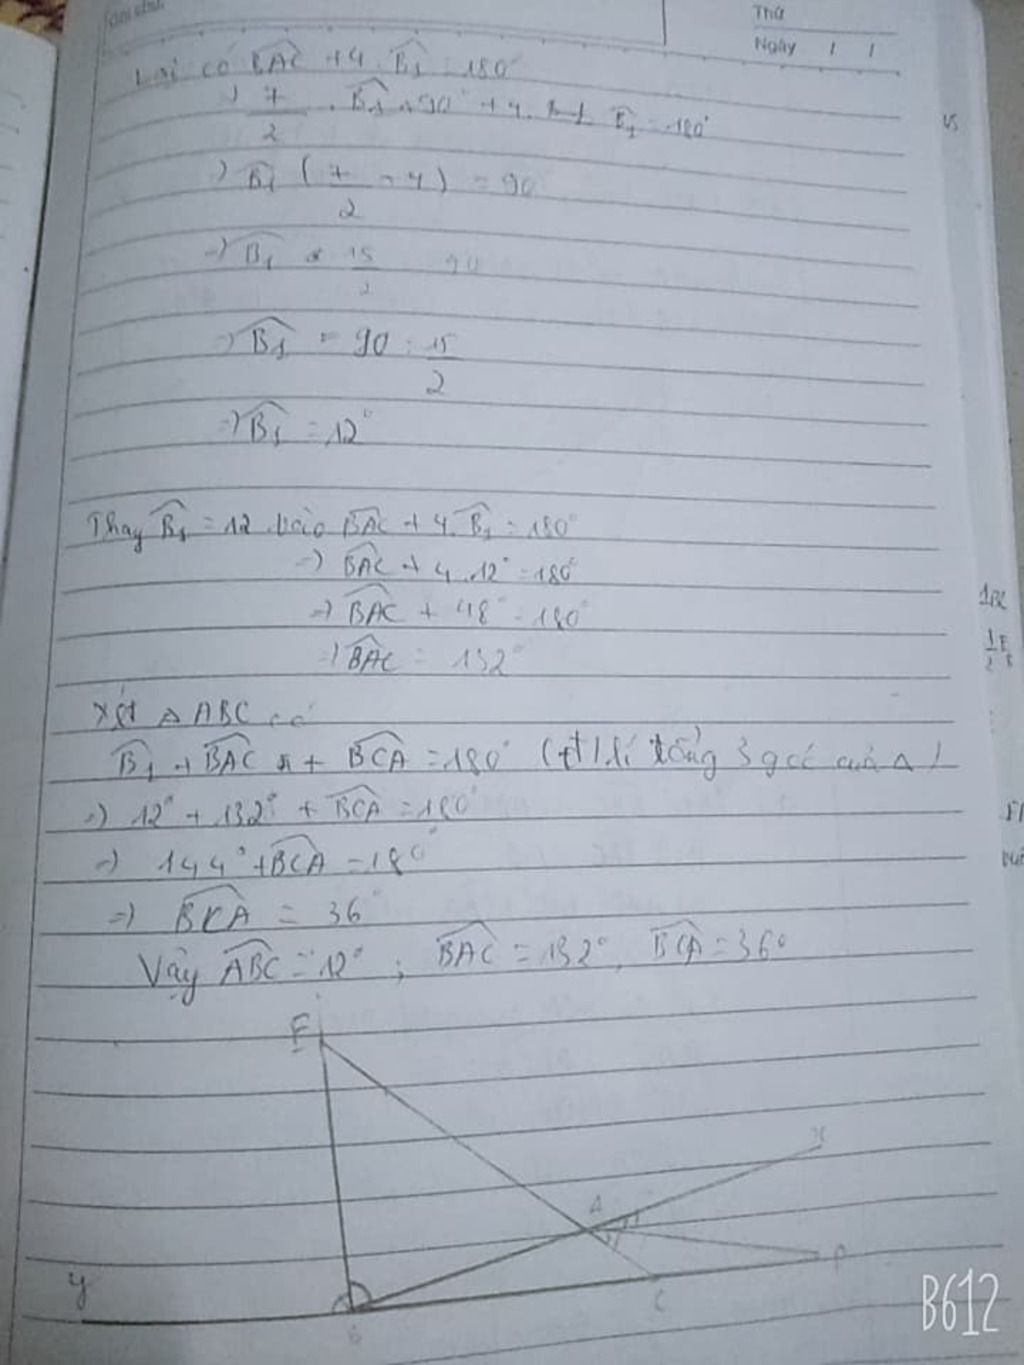 Thứ
Ngày / /
Lại có BAC + 4. B1 = 180°
7/2 . B1 + 90° + 4. B1 = 180°
=) B1 ( 7/2 + 4 ) = 90
=) B1 . 15/2 = 90
=) B1 = 90 : 15/2
=) B1 = 12°
Thay B1 = 12 vào BAC + 4. B1 = 180°
=) BAC + 4 . 12° = 180°
=) BAC + 48° = 180°
=) BAC = 132°
Xét △ ABC có
B1 + BAC + BCA = 180° (đ/lí tổng 3 góc của △)
=) 12° + 132° + BCA = 180°
=) 144° + BCA = 180°
=) BCA = 36°
Vậy ABC = 12° ; BAC = 132°, BCA = 36°
E
x
A
y
B
C
B612